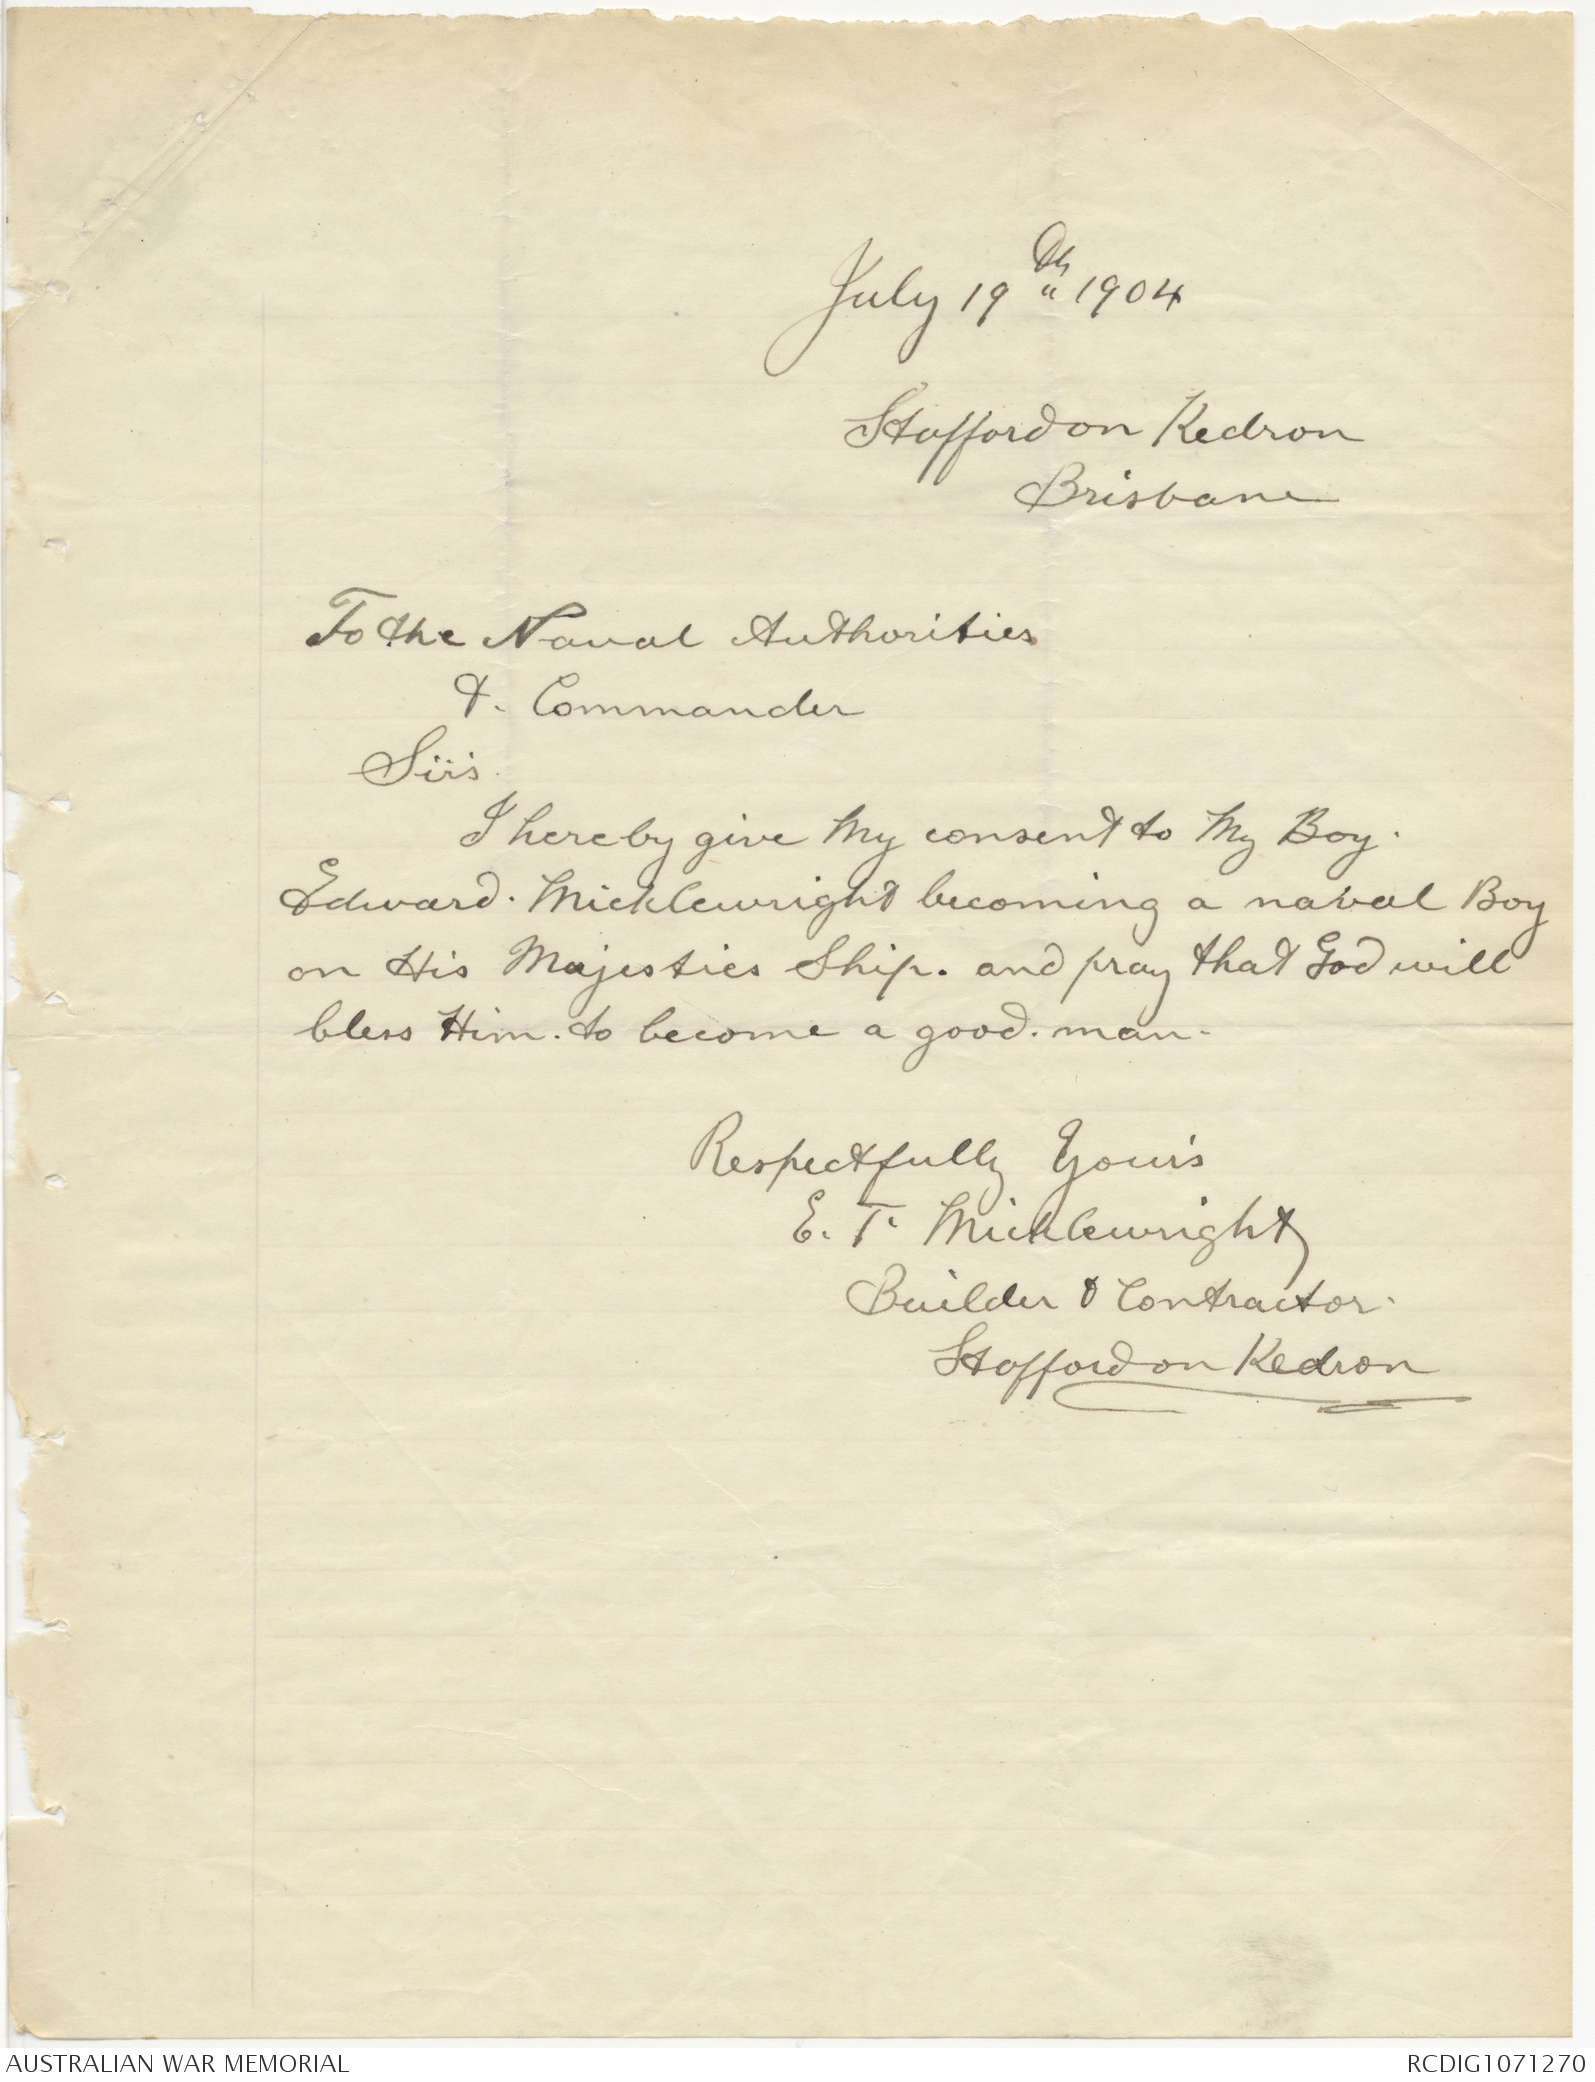 July 19th 1904
Stafford on Kedron
Brisbane
To the Naval Authorities
& Commander
Sirs
I hereby give My consent to My Boy.
Edward. Micklewright becoming a naval Boy
on His Majesties Ship. and pray that God will
bless Him. to become a good. man.
Respectfully Yours
E. T. Micklewright
Builder & Contractor.
Stafford on Kedron
AUSTRALIAN WAR MEMORIAL
RCDIG1071270